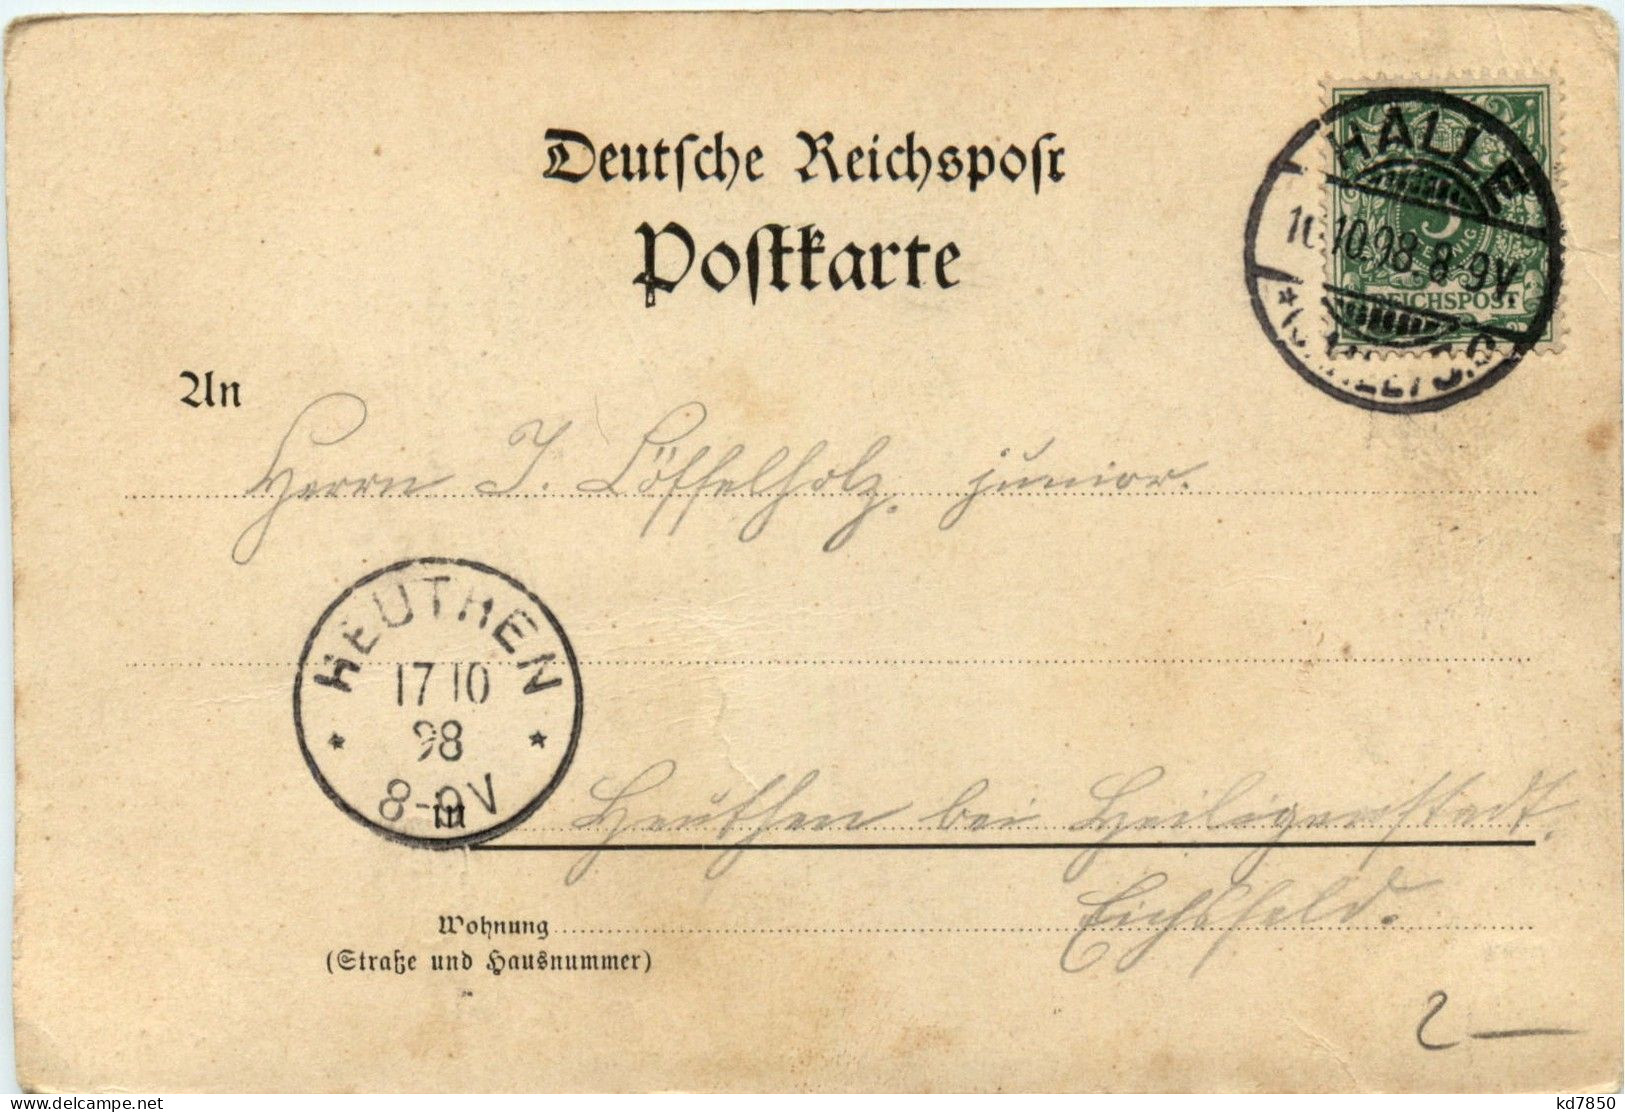 Deutsche Reichspost
Postkarte
HALLE
10.98. 8-9V
5
REICHSPOST
An
Herrn J. Löffelholz. junior.
HEUTHEN
17 10
98
8-9V
in
Heuthen bei Heiligenstadt.
Eichsfeld.
Wohnung
(Straße und Hausnummer)
2 —
delcampe.net
kd7850